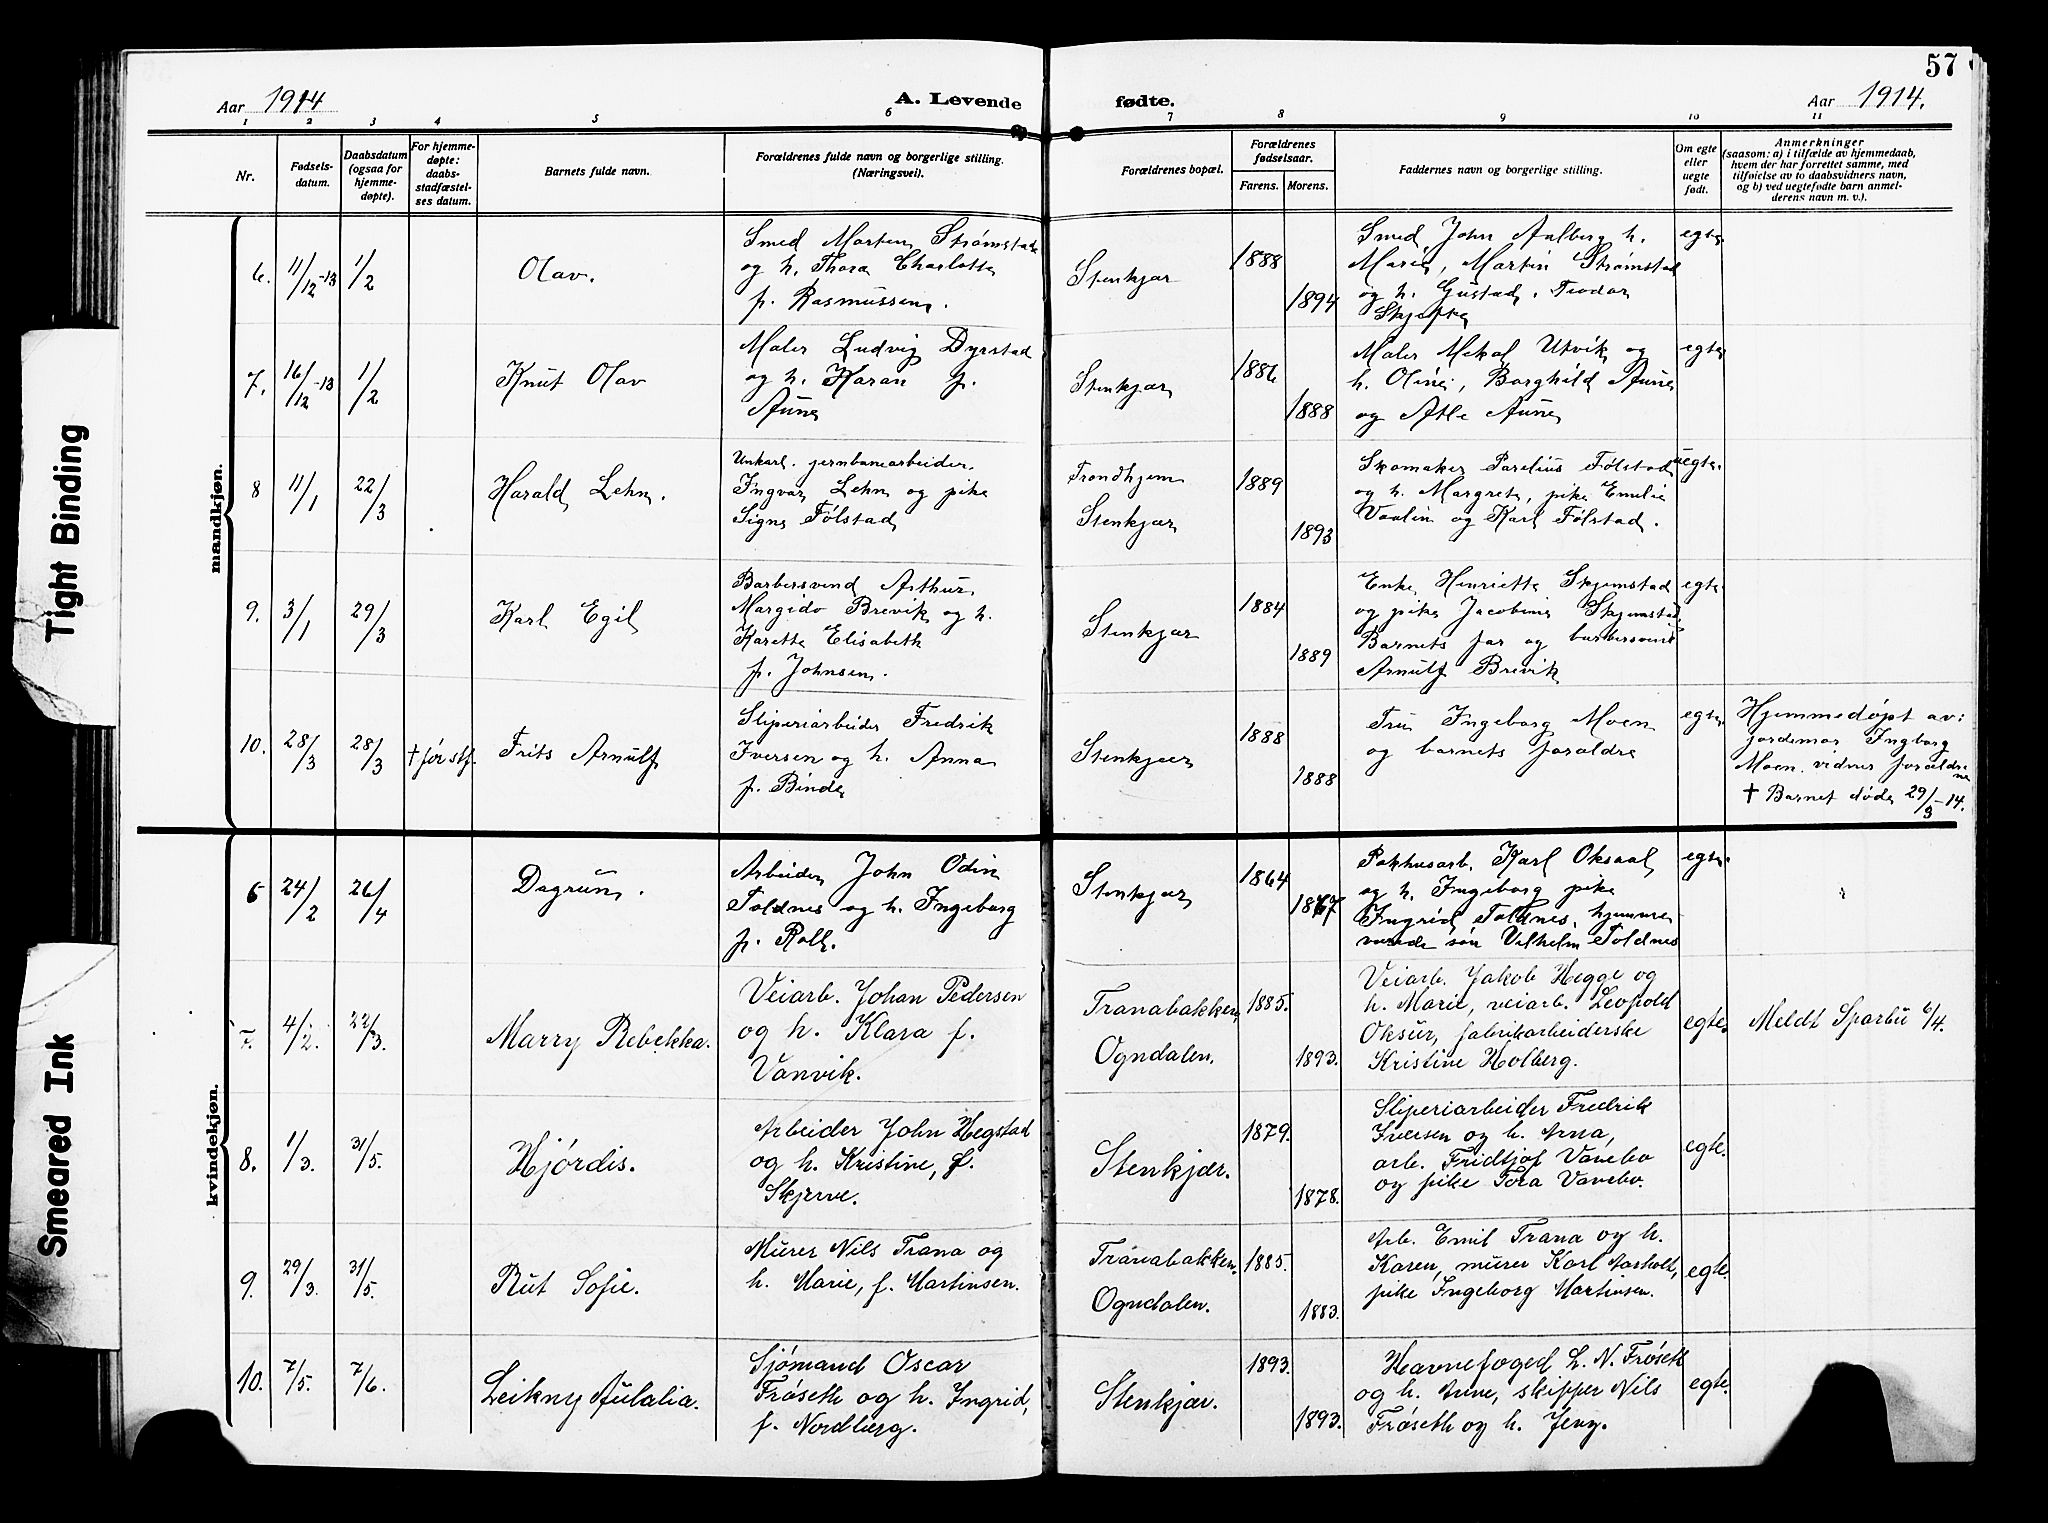 57
Aar 1914
A. Levende
fødte.
Aar 1914.
1 2 3 4 5 6 7 8 9 10 11
Nr.
Fødsels-
datum.
Daabsdatum
(ogsaa for
hjemme-
døpte).
For hjemme-
døpte:
daabs-
stadfæstel-
ses datum.
Barnets fulde navn.
Forældrenes fulde navn og borgerlige stilling.
(Næringsvei).
Forældrenes bopæl.
Forældrenes
fødselsaar.
Farens. Morens.
Faddernes navn og borgerlige stilling.
Om egte
eller
uegte
født.
Anmerkninger
(saasom: a) i tilfælde av hjemmedaab,
hvem der har forrettet samme, med
tilføielse av to daabsvidners navn,
og b) ved uegtefødte barn anmel-
derens navn m. v.).
mandkjøn.
6. 11/12-13 1/2
Olav.
Smed Morten Strømstad
og h. Thora Charlotte
f. Rasmussen.
Stenkjær
1888
1894
Smed John Aalberg h.
Marie, Martin Strømstad
og h. Gustad, Teodor
Skjefte
egte
7. 16/12-13 1/2
Knut Olav
Maler Ludvig Dyrstad
og h. Karan f.
Aune
Stenkjær
1886
1888
Maler Mekal Utvik og
h. Oline, Borghild Aune
og Atle Aune
egte
8 11/1 22/3
Harald Lehn.
Unkarl. jernbanearbeider
Ingvar Lehn og pike
Signe Følstad
Trondhjem
Stenkjær
1889
1893
Skomaker Parelius Følstad
og h. Margrete, pike Emilie
Vaalin og Karl Følstad.
uegte.
9. 3/1 29/3
Karl Egil
Barbersvend Arthur
Margido Brevik og h.
Karette Elisabeth
f. Johnsen.
Stenkjær
1884
1889
Enke Henriette Skjemstad
og pike Jacobine Skjemstad,
Barnets far og barbersvend
Arnulf Brevik
egte
10. 28/3 28/3 † før stf.
Frits Arnulf
Sliperiarbeider Fredrik
Iversen og h. Anna
f. Binde
Stenkjær
1888
1888
Fru Ingeborg Moen
og barnets forældre
egte
Hjemmedøpt av:
jordemor Ingborg
Moen. vidner forældre
ne
† Barnet døde 29/3-14.
kvindekjøn.
6 24/2 26/4
Dagrun.
Arbeider John Odin
Toldnes og h. Ingeborg
f. Roll.
Stenkjær
1864
1867
Pakhusarb. Karl Oksaal
og h. Ingeborg pike
Ingrid Toldnes, hjemme
værende søn Vilhelm Toldnes
egte
7. 4/2. 22/3.
Marry Rebekka.
Veiarb. Johan Pedersen
og h. Klara f.
Vanvik.
Tranabakken,
Ogndalen.
1885.
1893.
Veiarb. Jakob Hegge og
h. Marie, veiarb. Leopold
Oksur, fabrikarbeiderske
Kristine Holberg.
egte.
Meldt Sparbu 6/4.
8. 1/3. 31/5.
Hjørdis.
Arbeider John Hegstad
og h. Kristine, f.
Skjerve.
Stenkjær.
1879.
1878.
Sliperiarbeider Fredrik
Iversen og h. Anna,
arb. Fridtjof Vanebo
og pike Tora Vanebo.
egte.
9. 29/3. 31/5.
Rut Sofie.
Murer Nils Trana og
h. Marie, f. Martinsen.
Tranabakken.
Ogndalen.
1885.
1883.
Arb. Emil Trana og h.
Karen, murer Karl Aasholt,
pike Ingeborg Martinsen.
egte.
10. 7/5. 7/6.
Leikny Aulalia.
Sjømand Oscar
Frøseth og h. Ingrid,
f. Nordberg.
Stenkjær.
1893.
1893.
Havnefoged L. N. Frøseth
og h. Anne, skipper Nils
Frøseth og h. Jeny.
egte.
Tight Binding
Smeared Ink